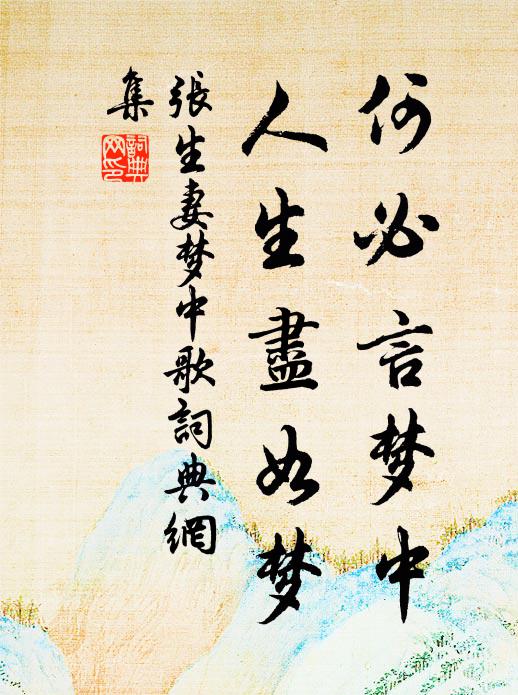 何必言梦中
人生盡如梦
張生妻梦中歌詞典網
集
詞典
网印